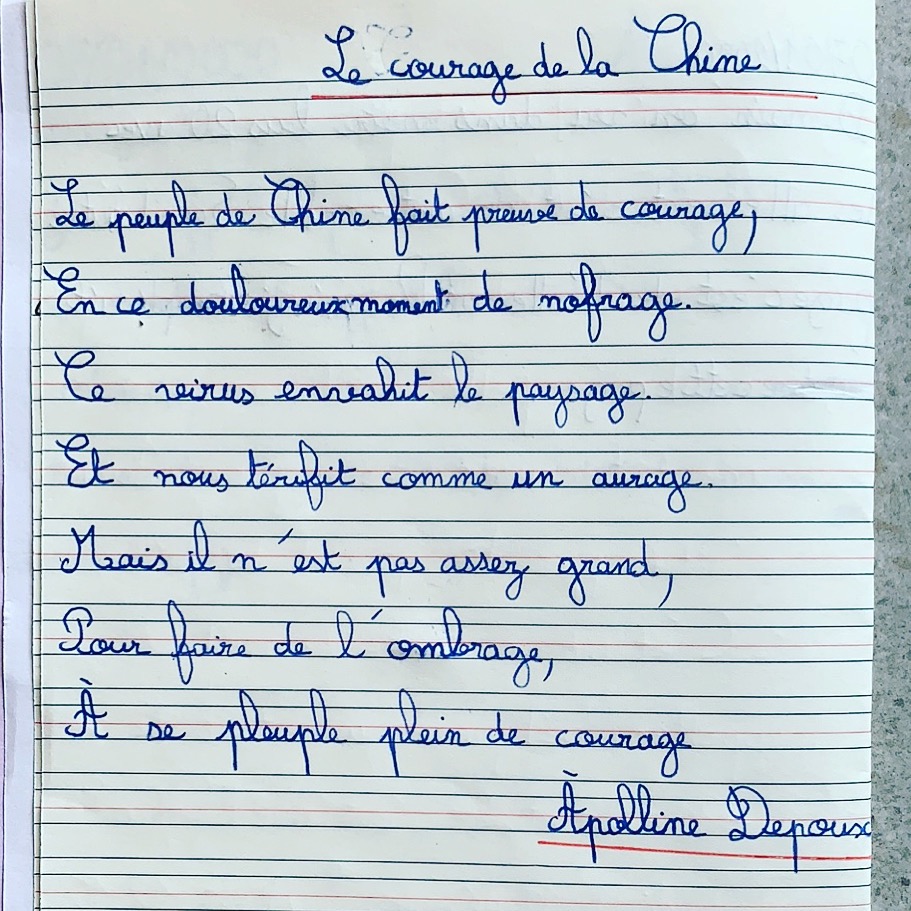 Le courage de la Chine
Le peuple de Chine fait preuve de courage,
En ce douloureux moment de nofrage.
Ce veirus envahit le paysage.
Et nous térifit comme un aurage.
Mais il n'est pas assez grand,
Pour faire de l'ombrage,
À se pleuple plein de courage
Àpolline Depoux